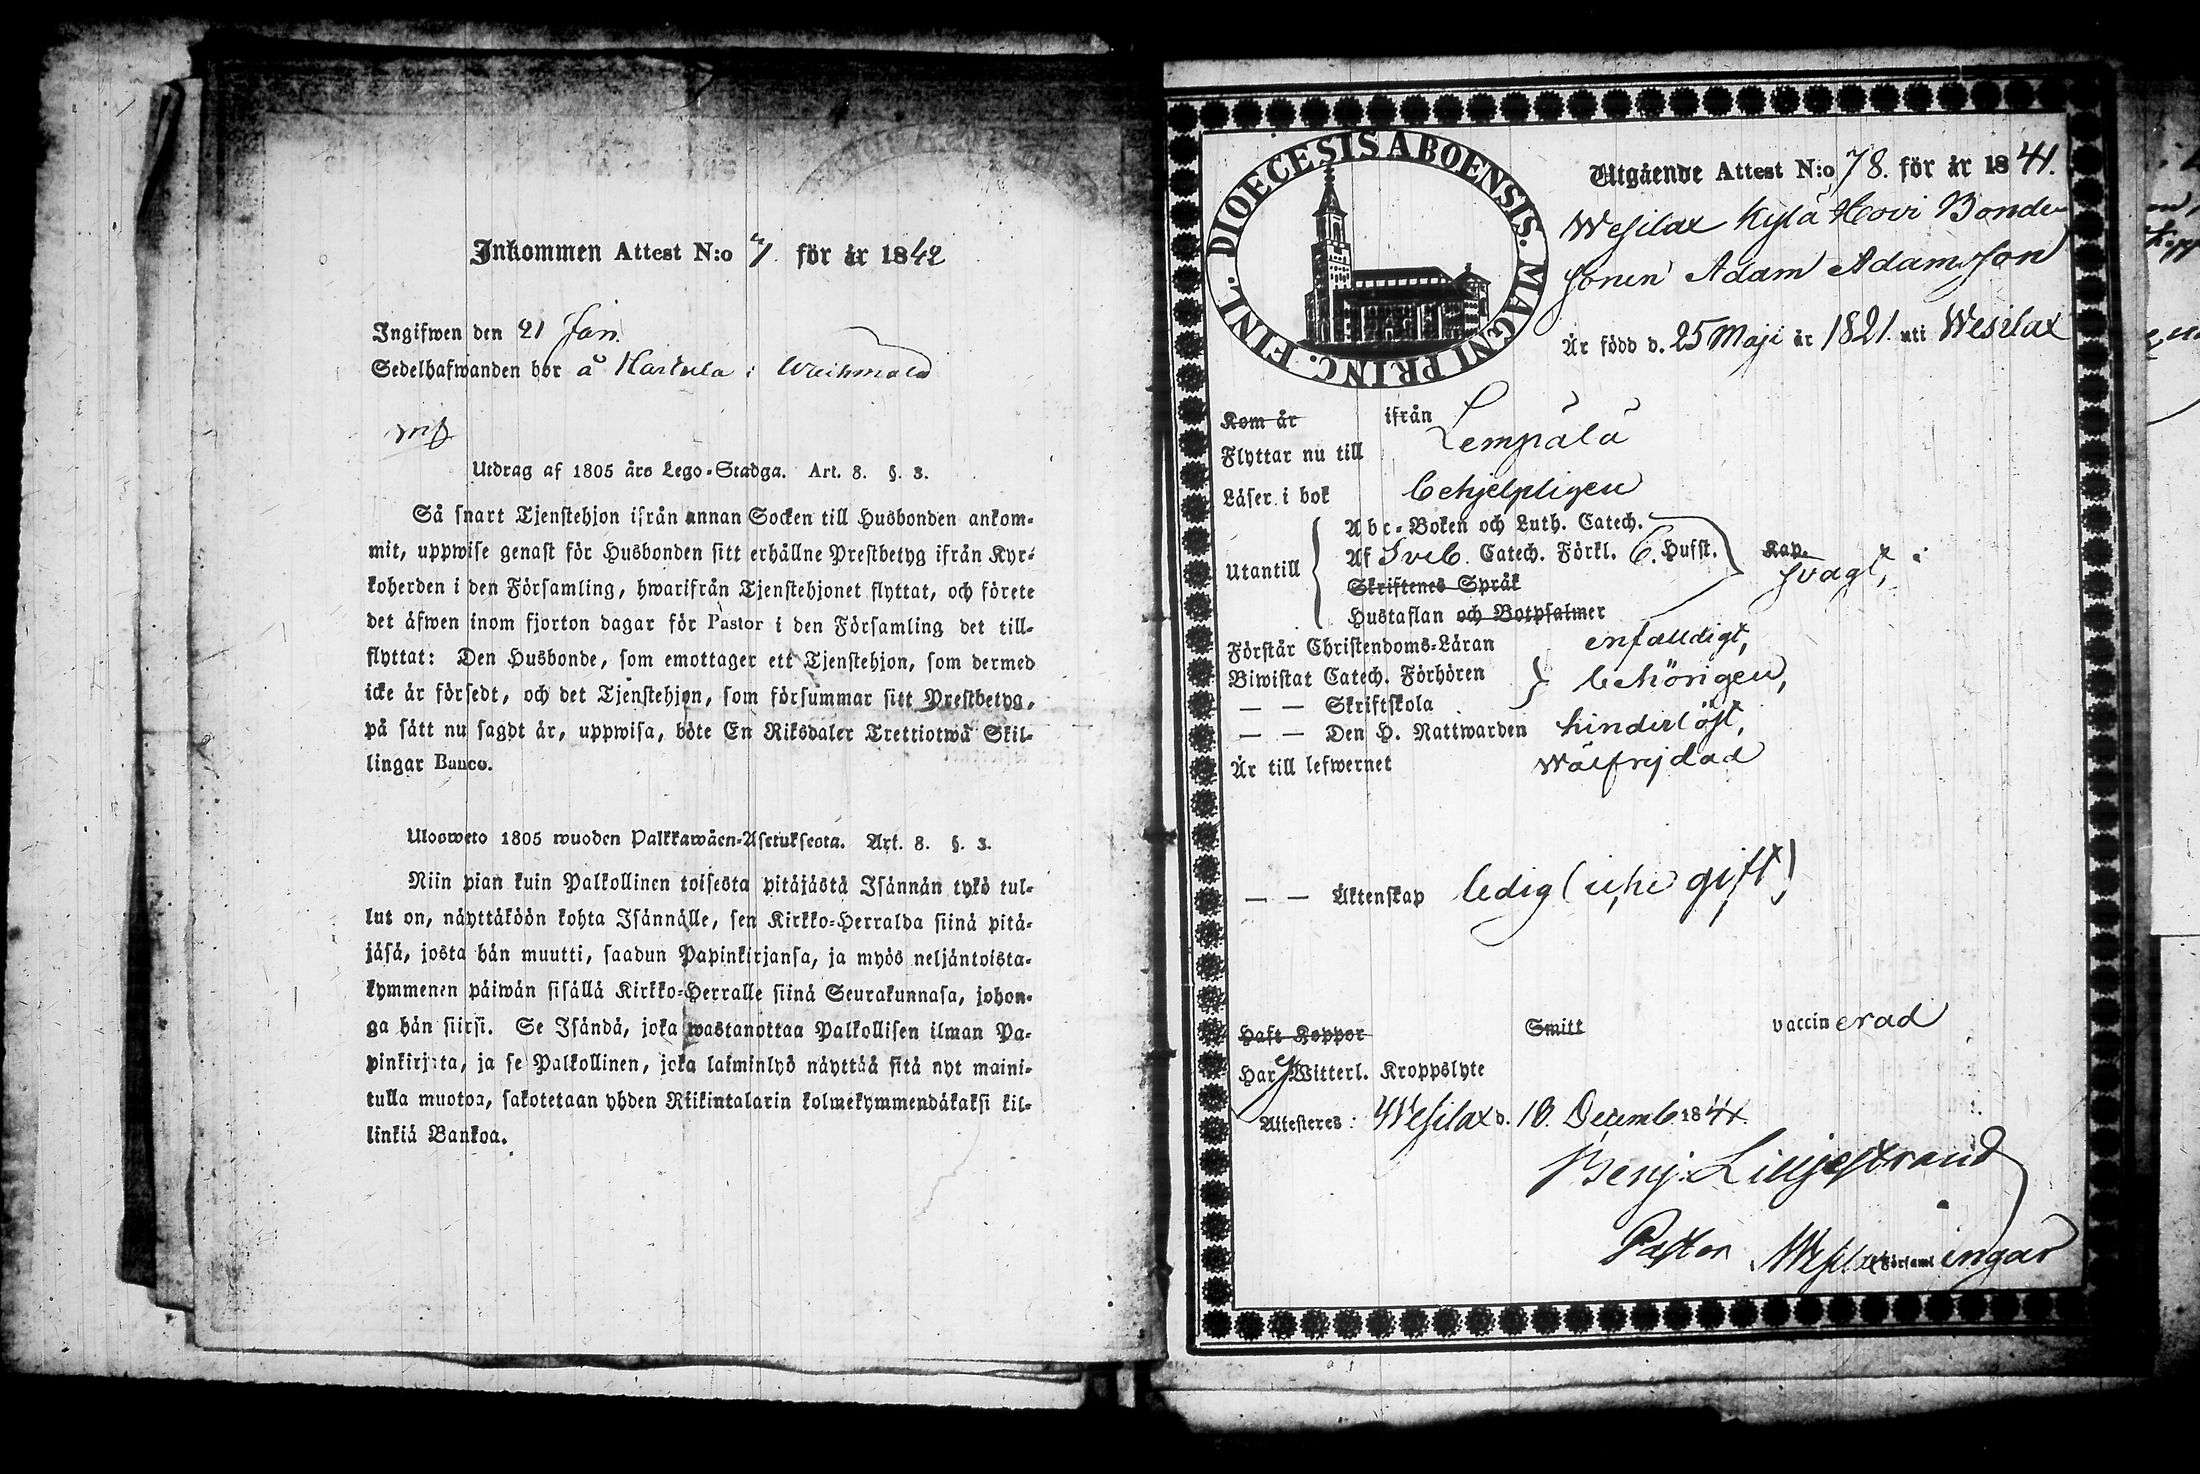 Inkommen Attest N:o 7 för år 1842
Ingifwen den 21 Jan.
Sedelhafwanden bor å Harkula i
Utdrag af 1805 års Lego-Stadga. Art. 8. §. 3.
Så snart Tjenstehjon ifrån annan Socken till Husbonden ankom-
mit, uppwise genast för Husbonden sitt erhållne Prestbetyg ifrån Kyr-
koherden i den Församling, hwarifrån Tjenstehjonet flyttat, och förete
det äfwen inom fjorton dagar för Pastor i den Församling det till-
flyttat: Den Husbonde, som emottager ett Tjenstehjon, som dermed
icke är försedt, och det Tjenstehjon, som försummar sitt Prestbetyg,
på sätt nu sagdt är, uppwisa, böte En Riksdaler Trettiotwå Skil-
lingar Banco.
Ulosweto 1805 wuoden Palkkawäen-Asetuksesta. Art. 8. §. 3.
Niin pian kuin Palkollinen toisesta pitäjästä Isännän tykö tul-
lut on, näyttäköön kohta Isännälle, sen Kirkko-Herralda siinä pitä-
jäsä, josta hän muutti, saadun Papinkirjansa, ja myös neljäntoista-
kymmenen päiwän sisällä Kirkko-Herralle siinä Seurakunnasa, johon-
ga hän siirsi. Se Isändä, joka wastanottaa Palkollisen ilman Pa-
pinkirjata, ja se Palkollinen, joka laiminlyö näyttää sitä nyt maini-
tulla muotoa, sakotetaan yhden Riikintalarin kolmekymmendäkaksi kil-
linkiä Bankoa.
DIOECESIS ABOENSIS. MAGNI PRINC. FINL.
Utgående Attest N:o 78. för år 1841.
Wesilax Kylä Hovi Bonde
sonen Adam Adamsson
Är född d. 25 Maji år 1821. uti Wesilax
Kom år ifrån
Flyttar nu till Lempälä
Läser i bok behjelpligen
Abc-Boken och Luth. Catech.
Utantill Af Sveb. Catech. Förkl. 6. Hufst. Kap. svagt,
Skriftenes Språk
Hustaflan och Botpsalmer
Förstår Christendoms-Läran enfaldigt,
Biwistat Catech. Förhören behörigen,
— — Skriftskola
— — Den H. Nattwarden hinderlöst,
Är till lefwernet wälfrejdad
— — Äktenskap ledig (icke gift)
Haft Koppor Smitt vaccinerad
Har Witterl. Kroppslyte
Attesteres: Wesilax d. 10. Decemb. 1841.
Benj. Liljestrand
Pastor Wesilax Församlingar